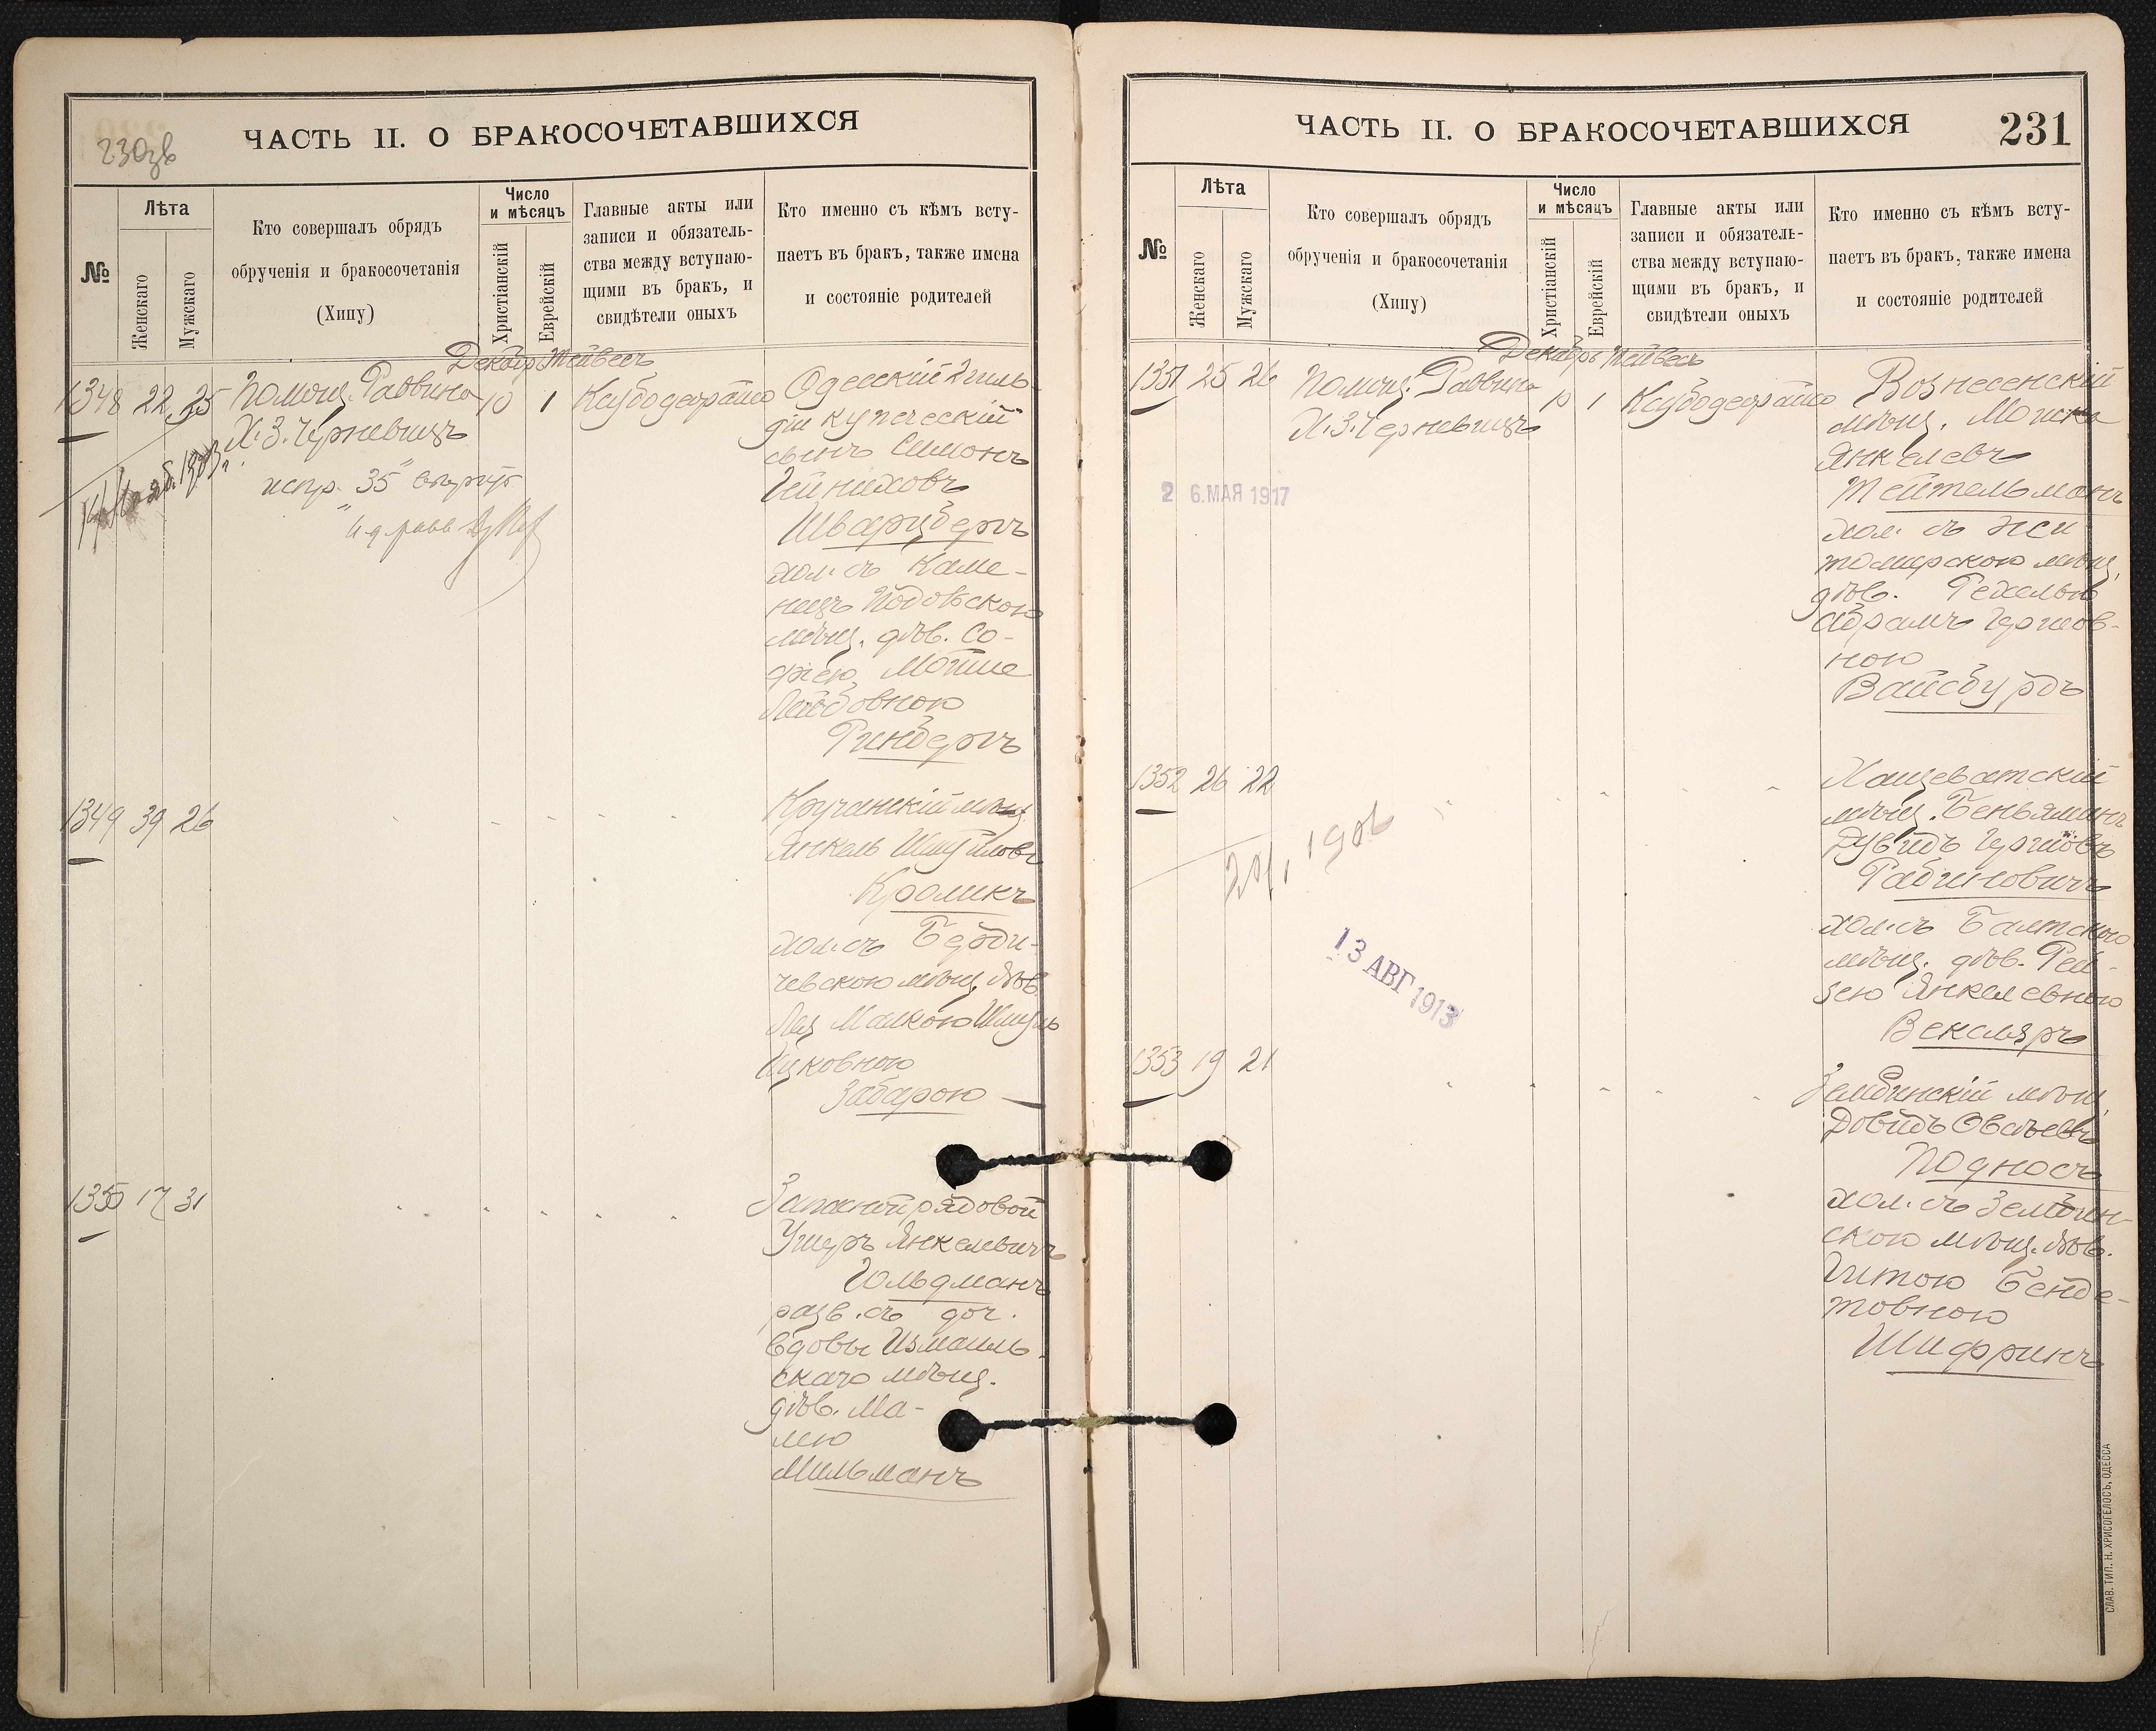 230зв
ЧАСТЬ II. О БРАКОСОЧЕТАВШИХСЯ
№
Лѣта
Женскаго
Мужскаго
Кто совершалъ обрядъ
обрученія и бракосочетанія
(Хипу)
Число
и мѣсяцъ
Христіанскій
Еврейскій
Главные акты или
записи и обязатель-
ства между вступаю-
щими въ бракъ, и
свидѣтели оныхъ
Кто именно съ кѣмъ всту-
паетъ въ бракъ, также имена
и состояніе родителей
Декабр Тейвесъ
1348 22 35 Помощ. Раввина 10 1
Х. З. Черневицъ
испр. "35"
Одесскій 2 гиль-
діи купеческій
сынъ Симонъ
Гейниховъ
Шварцбергъ
хол. съ Каме-
нецъ Подольскою
мѣщ. дѣв. Со-
фіею Мотше
Лейбовною
Гинбергъ
1349 39 26
мѣщ.
Янкель Шмуйловъ
Кроликъ
хол. съ Берди-
чевскою мѣщ. дѣв.
Малкою Шмуль
Ицковною
Забарою
1350 17 31
Запасный рядовой
Ушеръ Янкелевичъ
Гольдманъ
разв. съ доч.
вдовы Измаиль-
скаго мѣщ.
дѣв. Ма-
лею
Мильманъ
ЧАСТЬ II. О БРАКОСОЧЕТАВШИХСЯ
231
№
Лѣта
Женскаго
Мужскаго
Кто совершалъ обрядъ
обрученія и бракосочетанія
(Хипу)
Число
и мѣсяцъ
Христіанскій
Еврейскій
Главные акты или
записи и обязатель-
ства между вступаю-
щими въ бракъ, и
свидѣтели оныхъ
Кто именно съ кѣмъ всту-
паетъ въ бракъ, также имена
и состояніе родителей
Декабрь Тейвесъ
1351 25 26 Помощ. Раввина 10 1
Х. З. Черневицъ
2 6. МАЯ 1917
Вознесенскій
мѣщ. Мошко
Янкелевъ
Тейтельманъ
хол. съ Жи
томирскою мѣщ.
дѣв. Рехелью
Абрамъ Гершов-
ною
Вайсбурдъ
1352 26 22
1906
13 АВГ 1913
Хащеватскій
мѣщ. Беньяминъ
Дувидъ Гершовъ
Рабиновичъ
хол. съ Балтскою
мѣщ. дѣв. Рей-
зею Янкелевною
Векслеръ
1353 19 21
Зембинскій мѣщ.
Довидъ Овсѣевъ
Подносъ
хол. съ Зембин-
скою мѣщ. дѣв.
Гитою Бенде-
товною
Шифринъ
СЛАВ. ТИП. Н. ХРИСОГЕЛОСЪ, ОДЕССА